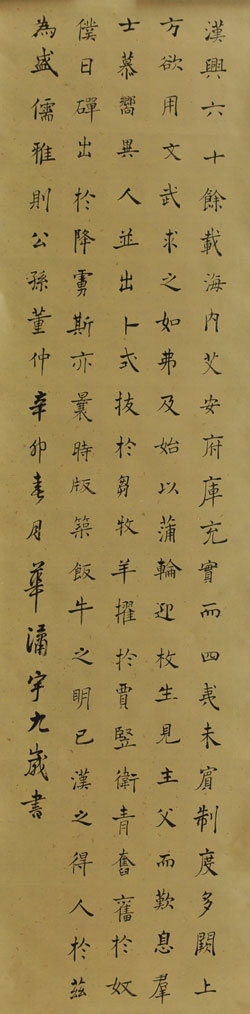 漢興六十餘載海内艾安府庫充實而四夷未賓制度多闕上
方欲用文武求之如弗及始以蒲輪迎枚生見主父而歎息羣
士慕嚮異人並出卜式拔於芻牧羊擢於賈豎衛青奮舊於奴
僕日磾出於降虜斯亦曩時版築飯牛之明已漢之得人於茲
為盛儒雅則公孫董仲辛卯春月華宇九歲書